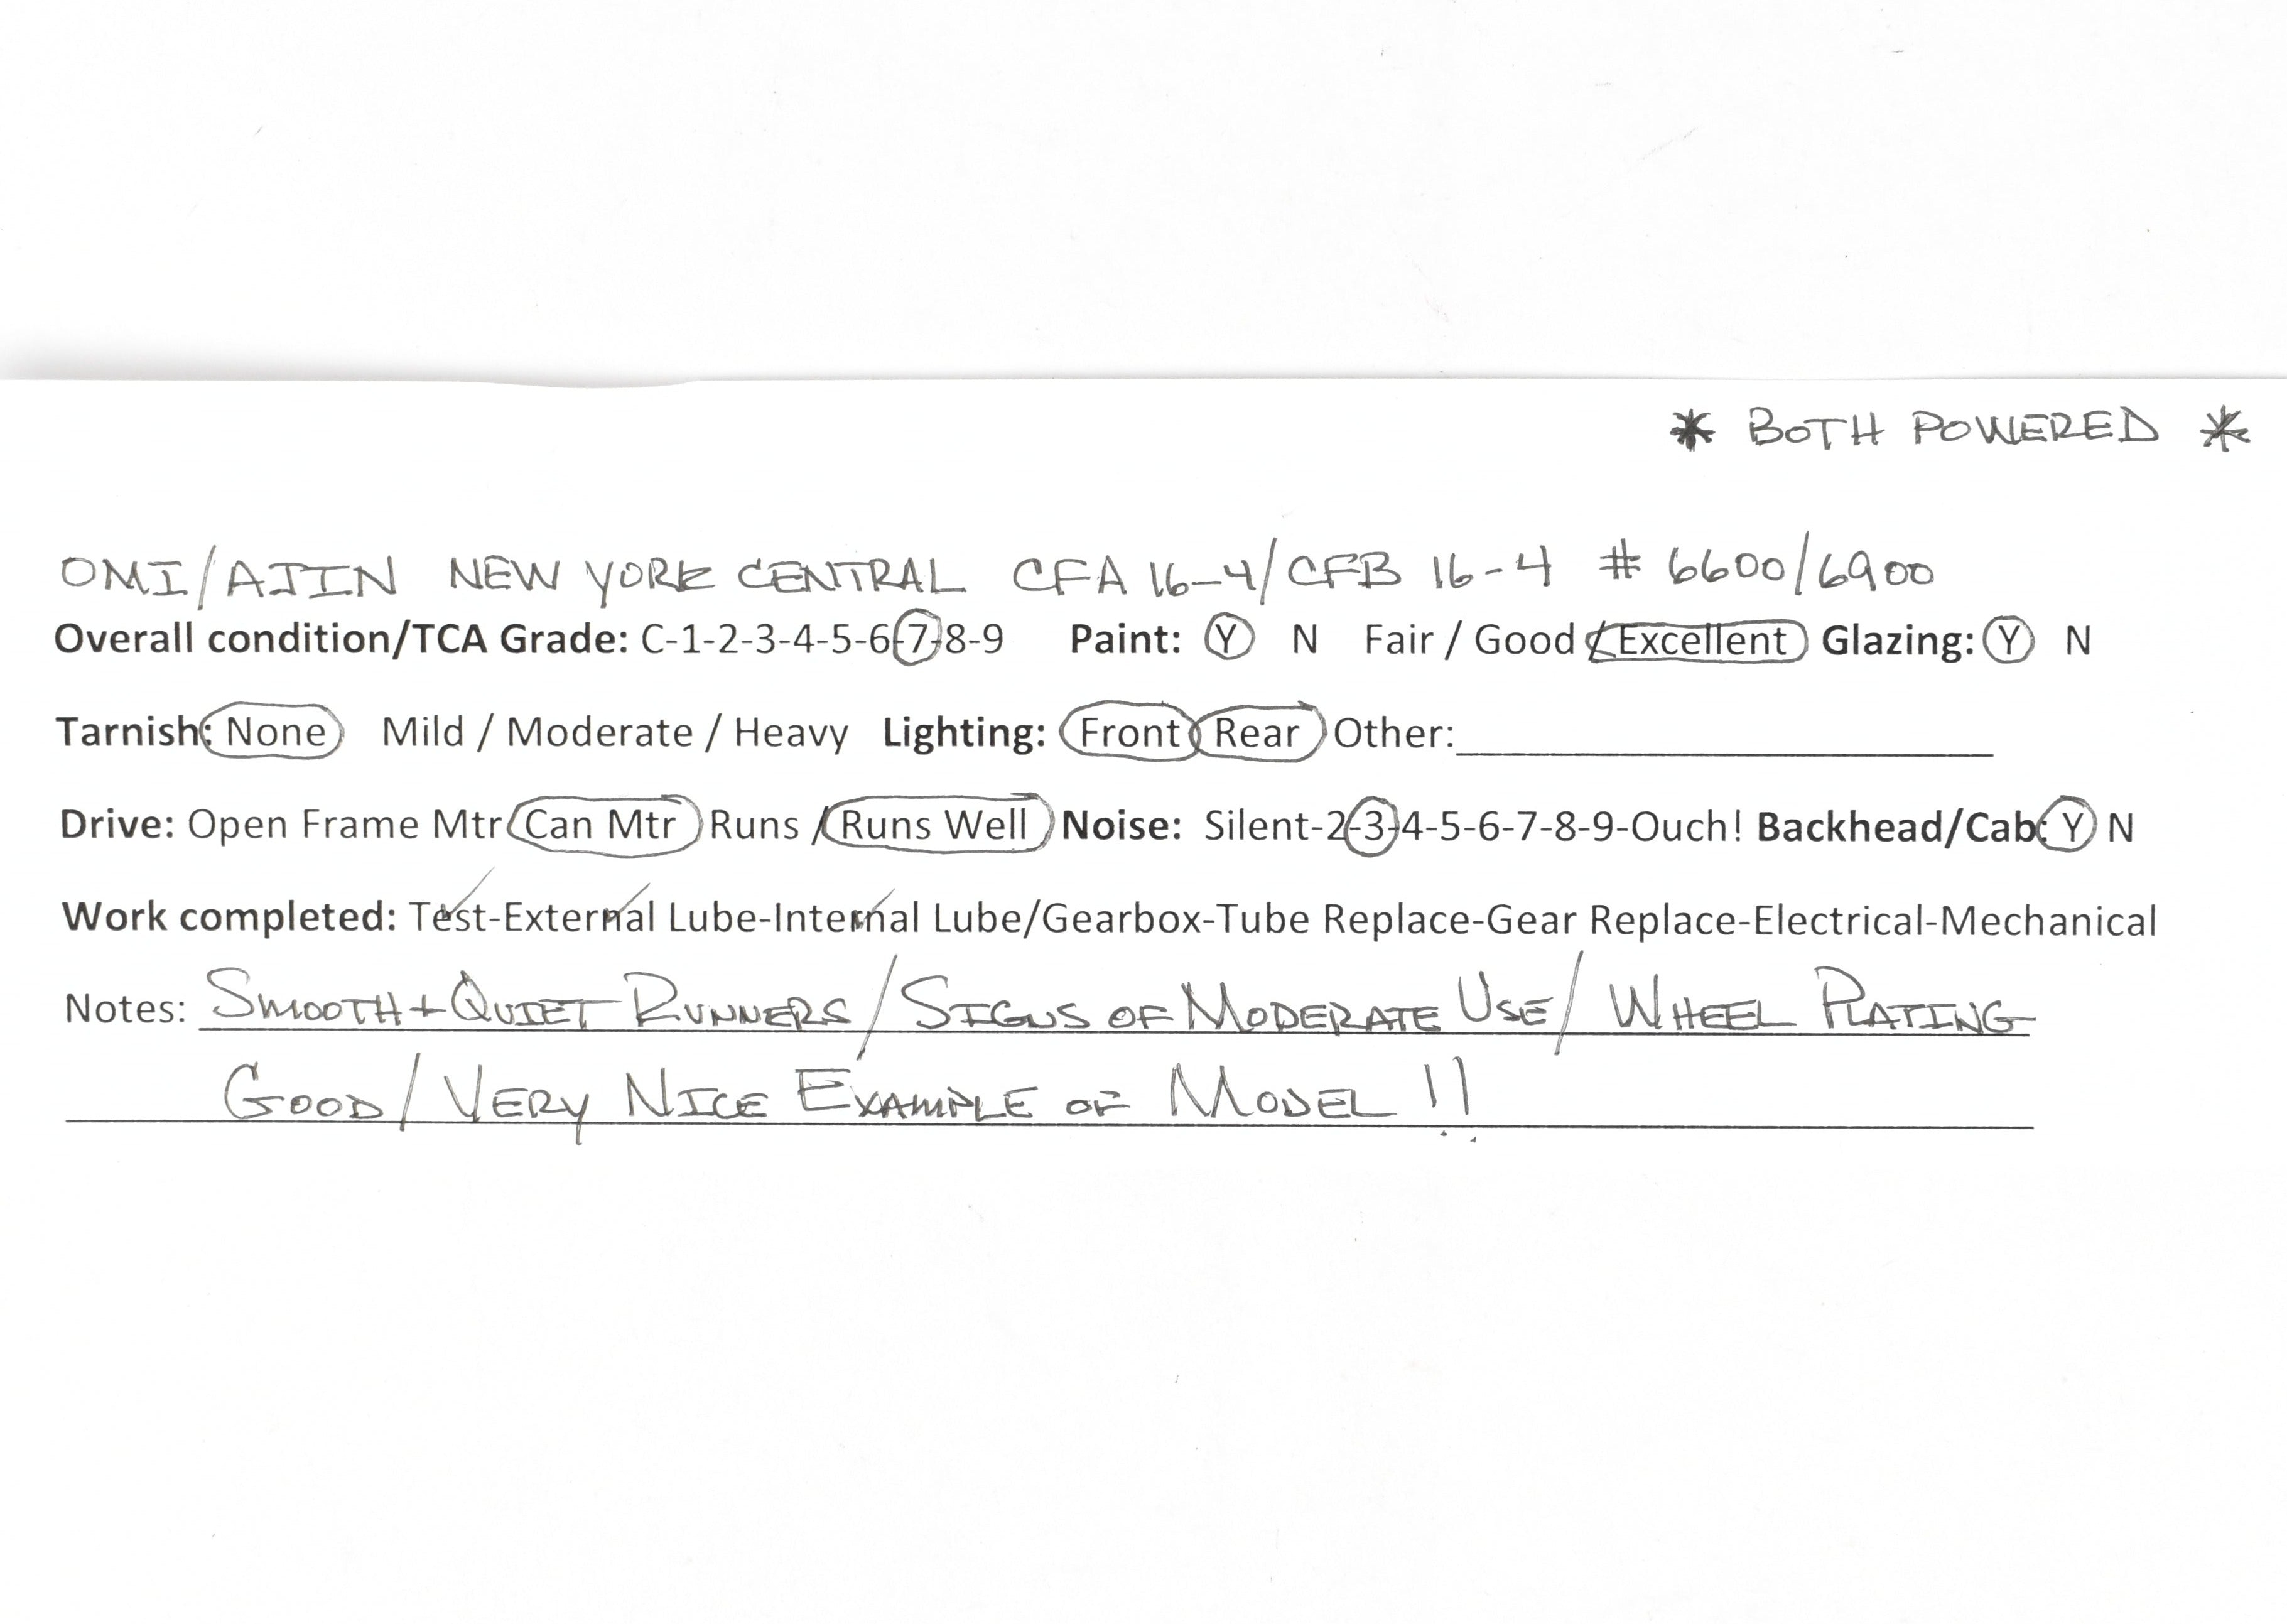 * BOTH POWERED *
OMI/AJIN NEW YORK CENTRAL CFA 16-4/CFB 16-4 # 6600/6900
Overall condition/TCA Grade: C-1-2-3-4-5-6-7-8-9 Paint: Y N Fair / Good / Excellent Glazing: Y N
Tarnish: None Mild / Moderate / Heavy Lighting: Front Rear Other:
Drive: Open Frame Mtr Can Mtr Runs / Runs Well Noise: Silent-2-3-4-5-6-7-8-9-Ouch! Backhead/Cab: Y N
Work completed: Test-External Lube-Internal Lube/Gearbox-Tube Replace-Gear Replace-Electrical-Mechanical
Notes: SMOOTH + QUIET RUNNERS / SIGNS OF MODERATE USE / WHEEL PLATING
GOOD / VERY NICE EXAMPLE OF MODEL !!